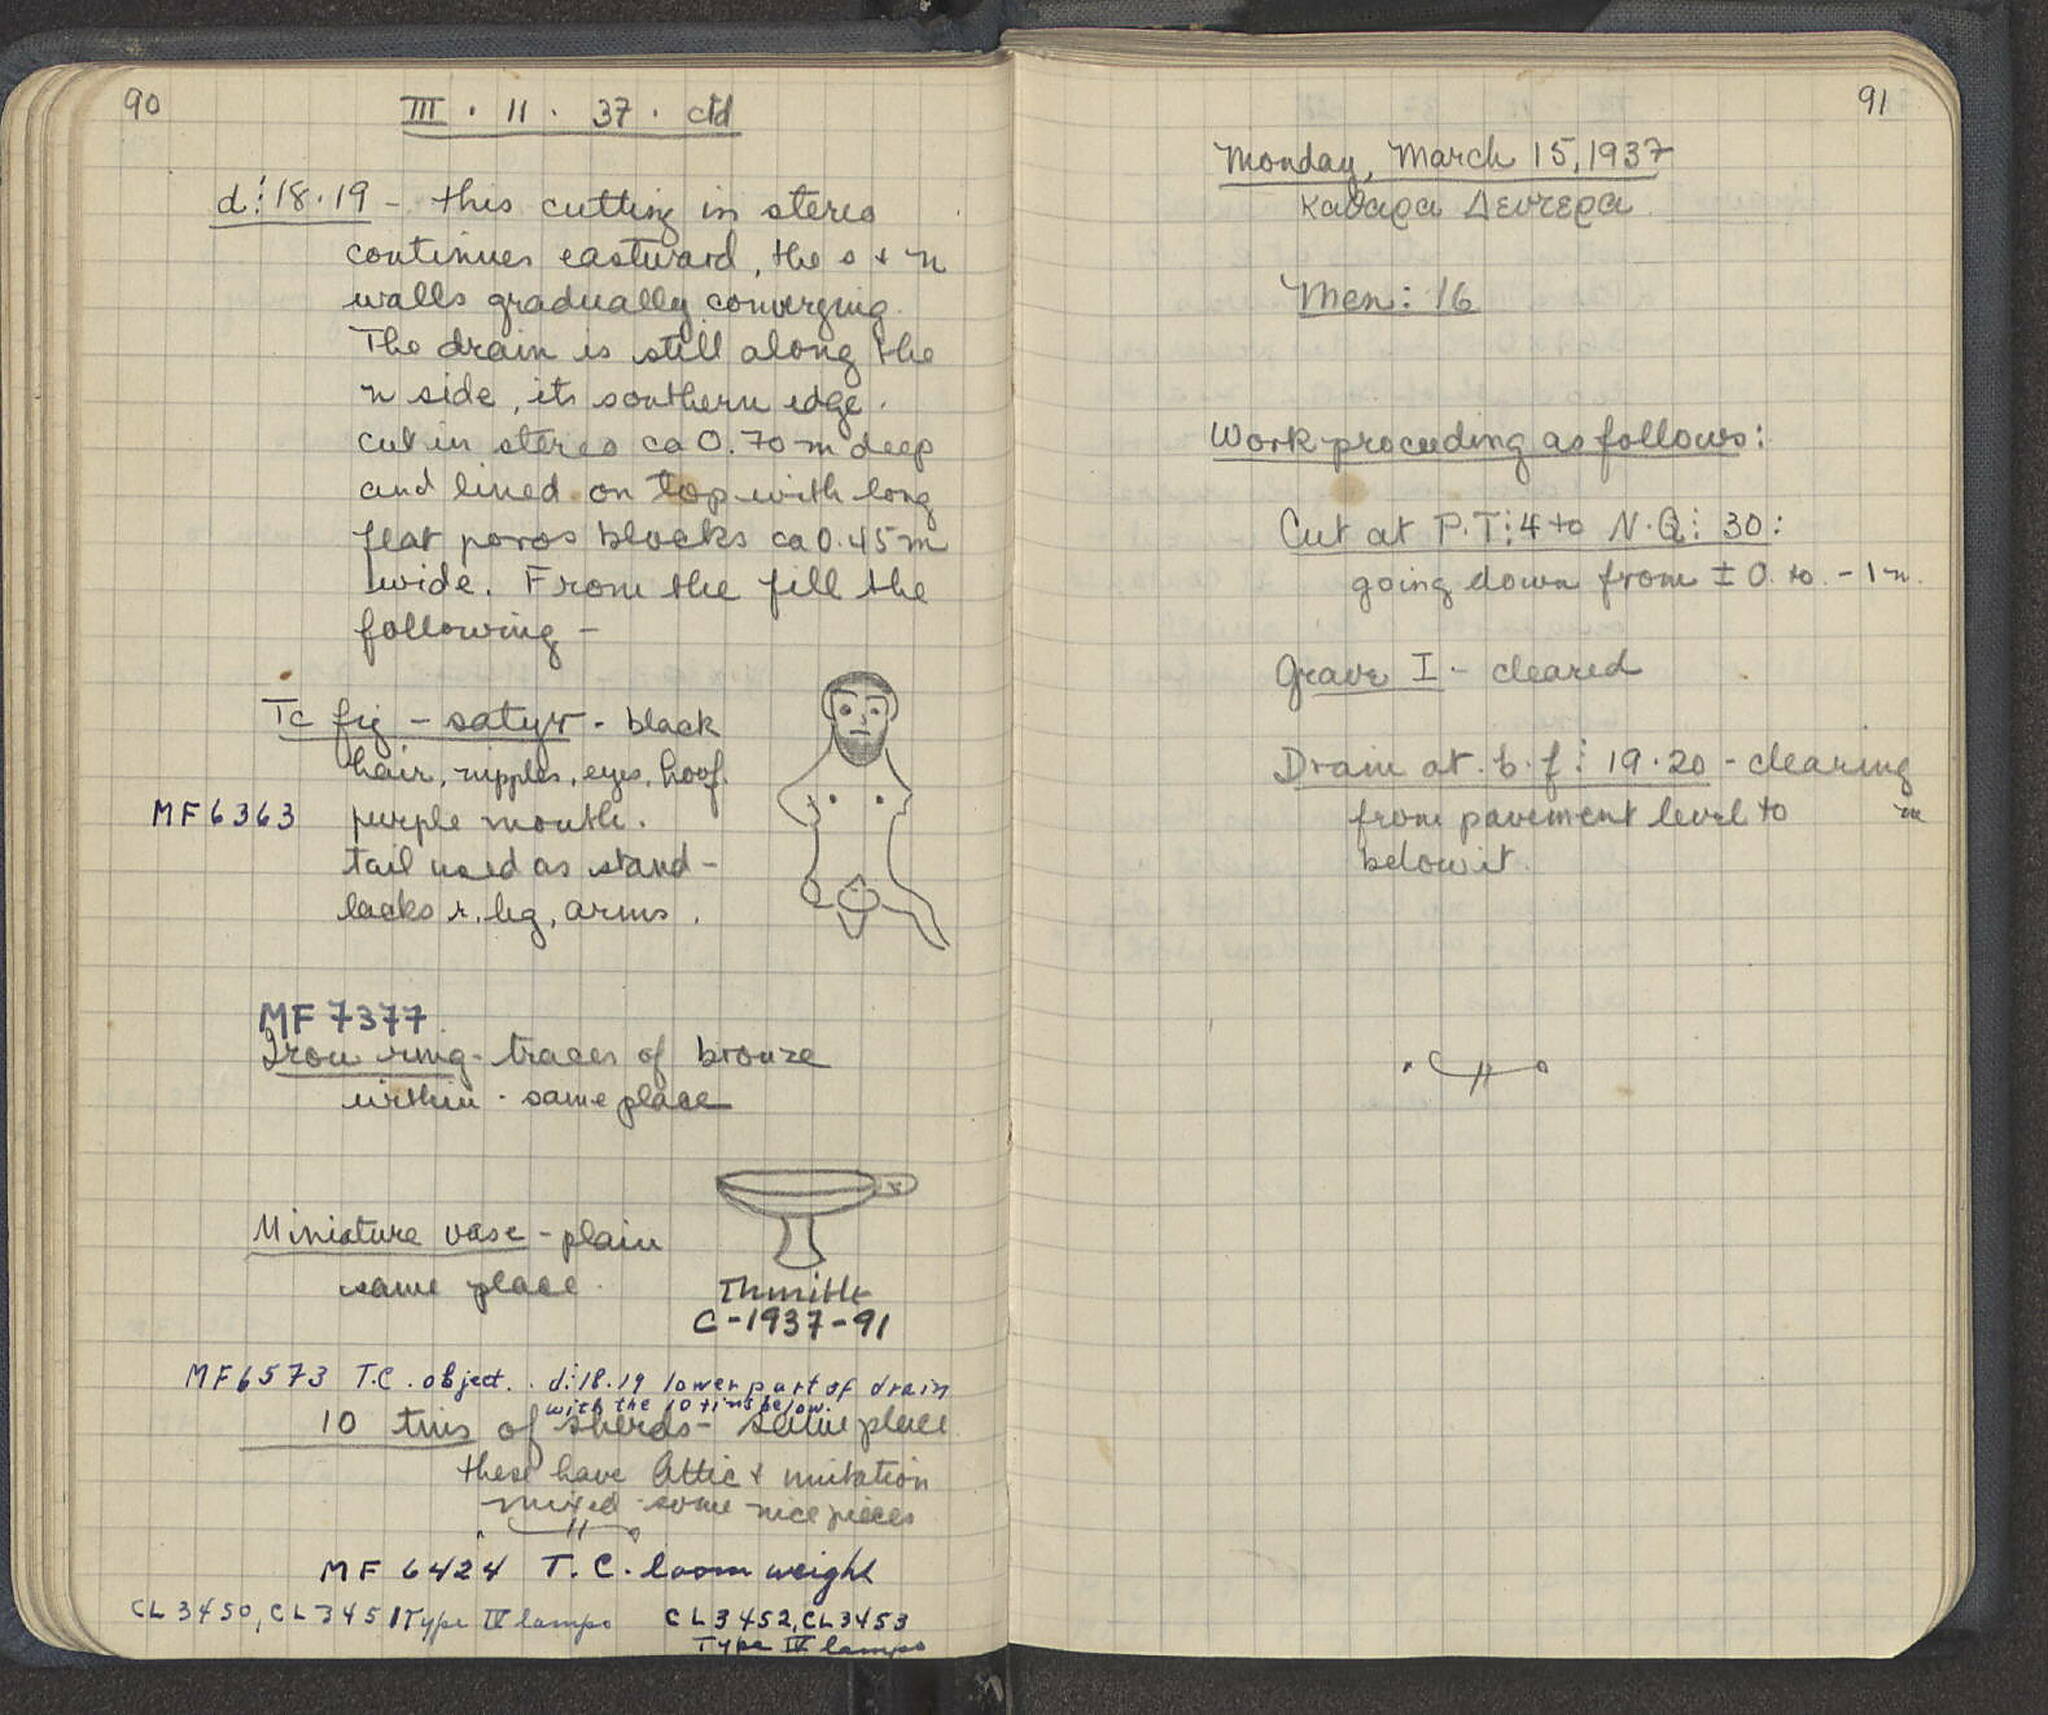 90
III . 11 . 37 . ctd
d:18.19 - this cutting in stereo
continues eastward, the s + n
walls gradually converging.
The drain is still along the
n side, its southern edge.
cut in stereo ca 0.70 m deep
and lined on top with long
flat poros blocks ca 0.45 m
wide. From the fill the
following -
Tc fig - satyr - black
hair, nipples, eyes, hoof.
MF 6363 purple mouth.
tail used as stand -
lacks r. leg, arms.
MF 7377
Iron ring - traces of bronze
within - same place
Miniature vase - plain
same place.
C-1937-91
MF 6573 T.C. object. d:18.19 lower part of drain
with the 10 tins below.
10 tins of sherds - same place
these have Attic + imitation
mixed - some nice pieces
MF 6424 T.C. loom weight
CL 3450, CL 3451 Type IV lamps CL 3452, CL 3453
Type IV lamps
91
Monday, March 15, 1937
Καθαρα Δευτερα
Men: 16
Work proceeding as follows:
Cut at P.T:4 to N.Q: 30:
going down from ± 0. to - 1 m.
Grave I - cleared
Drain at b.f: 19.20 - clearing
from pavement level to m
below it.